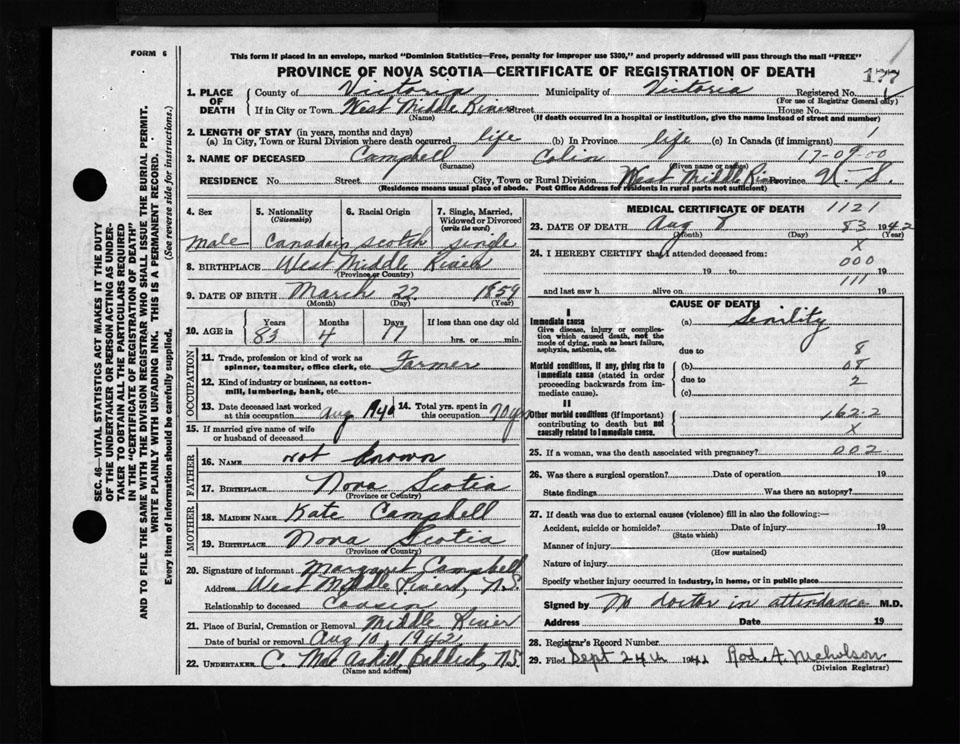 FORM 6
This form if placed in an envelope, marked "Dominion Statistics—Free, penalty for improper use $300," and properly addressed will pass through the mail "FREE"
PROVINCE OF NOVA SCOTIA—CERTIFICATE OF REGISTRATION OF DEATH
177
1. PLACE OF DEATH
County of Victoria Municipality of Victoria Registered No.
(For use of Registrar General only)
If in City or Town West Middle River Street House No.
(Name) (If death occurred in a hospital or institution, give the name instead of street and number)
2. LENGTH OF STAY (in years, months and days)
(a) In City, Town or Rural Division where death occurred life (b) In Province life (c) In Canada (if immigrant) 1
3. NAME OF DECEASED Campbell Colin 17-09-00
(Surname) (Given name or names)
RESIDENCE No. Street City, Town or Rural Division West Middle River Province N.S.
(Residence means usual place of abode. Post Office Address for residents in rural parts not sufficient)
4. Sex
5. Nationality (Citizenship)
6. Racial Origin
7. Single, Married, Widowed or Divorced (write the word)
male Canadain Scotch Single
8. BIRTHPLACE West Middle River
(Province or Country)
9. DATE OF BIRTH March 22 1859
(Month) (Day) (Year)
10. AGE in Years Months Days If less than one day old
83 4 17 hrs. or min.
OCCUPATION
11. Trade, profession or kind of work as spinner, teamster, office clerk, etc. Farmer
12. Kind of industry or business, as cotton-mill, lumbering, bank, etc.
13. Date deceased last worked at this occupation Aug 1940 14. Total yrs. spent in this occupation 70 yrs
15. If married give name of wife or husband of deceased
FATHER
16. NAME not known
17. BIRTHPLACE Nova Scotia
(Province or Country)
MOTHER
18. MAIDEN NAME Kate Campbell
19. BIRTHPLACE Nova Scotia
(Province or Country)
20. Signature of informant Margaret Campbell
Address West Middle River, N.S.
Relationship to deceased Coasin
21. Place of Burial, Cremation or Removal Middle River
Date of burial or removal Aug 10, 1942
22. UNDERTAKER C. Mac Baddeck, N.S.
(Name and address)
MEDICAL CERTIFICATE OF DEATH 1121
23. DATE OF DEATH Aug 8 83 1942
(Month) (Day) (Year)
24. I HEREBY CERTIFY that I attended deceased from: X
19 to 000 19
and last saw h alive on 111 19
CAUSE OF DEATH
I
Immediate cause (a) Senility
Give disease, injury or complication which caused death, not the mode of dying, such as heart failure, asphyxia, asthenia, etc.
due to 8
Morbid conditions, if any, giving rise to immediate cause (stated in order proceeding backwards from immediate cause).
(b) 08
due to 2
(c)
II
Other morbid conditions (if important) contributing to death but not causally related to immediate cause.
162.2
X
25. If a woman, was the death associated with pregnancy? 002
26. Was there a surgical operation? Date of operation 19
State findings Was there an autopsy?
27. If death was due to external causes (violence) fill in also the following:—
Accident, suicide or homicide? Date of injury 19
(State which)
Manner of injury
(How sustained)
Nature of injury
Specify whether injury occurred in industry, in home, or in public place
Signed by No doctor in attendance M.D.
Address Date 19
28. Registrar's Record Number
29. Filed Sept 24th 1942 Rod. A. Nicholson
(Division Registrar)
SEC. 46—VITAL STATISTICS ACT MAKES IT THE DUTY
OF THE UNDERTAKER OR PERSON ACTING AS UNDER-
TAKER TO OBTAIN ALL THE PARTICULARS REQUIRED
IN THE "CERTIFICATE OF REGISTRATION OF DEATH"
AND TO FILE THE SAME WITH THE DIVISION REGISTRAR WHO SHALL ISSUE THE BURIAL PERMIT.
WRITE PLAINLY WITH UNFADING INK. THIS IS A PERMANENT RECORD.
Every item of information should be carefully supplied. (See reverse side for instructions.)